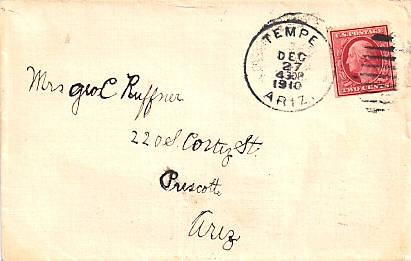 TEMPE
DEC
27
430P
1910
ARIZ.
U.S. POSTAGE
TWO CENTS
Mrs Geo C Ruffner
220 S. Cortez St.
Prescott
Ariz